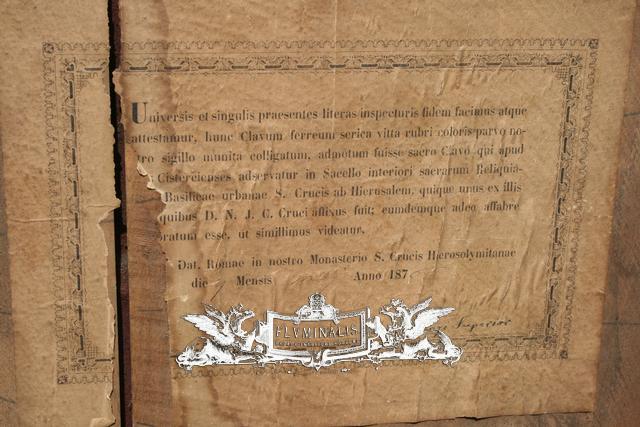 Universis et singulis praesentes literas inspecturis fidem facimus atque
attestamur, hunc Clavum ferreum serica vitta rubri coloris parvo no-
tro sigillo munita colligatum, admotum fuisse sacro Clavo qui apud
Cistercienses adservatur in Sacello interiori sacrarum Reliquia-
Basilicae urbanae S. Crucis ab Hierusalem, quique unus ex illis
quibus D. N. J. C. Cruci affixus fuit; eumdemque adeo affabre
ratum esse, ut simillimus videatur.
Dat. Romae in nostro Monasterio S. Crucis Hierosolymitanae
die Mensis Anno 187
Superior
FLVMINALIS